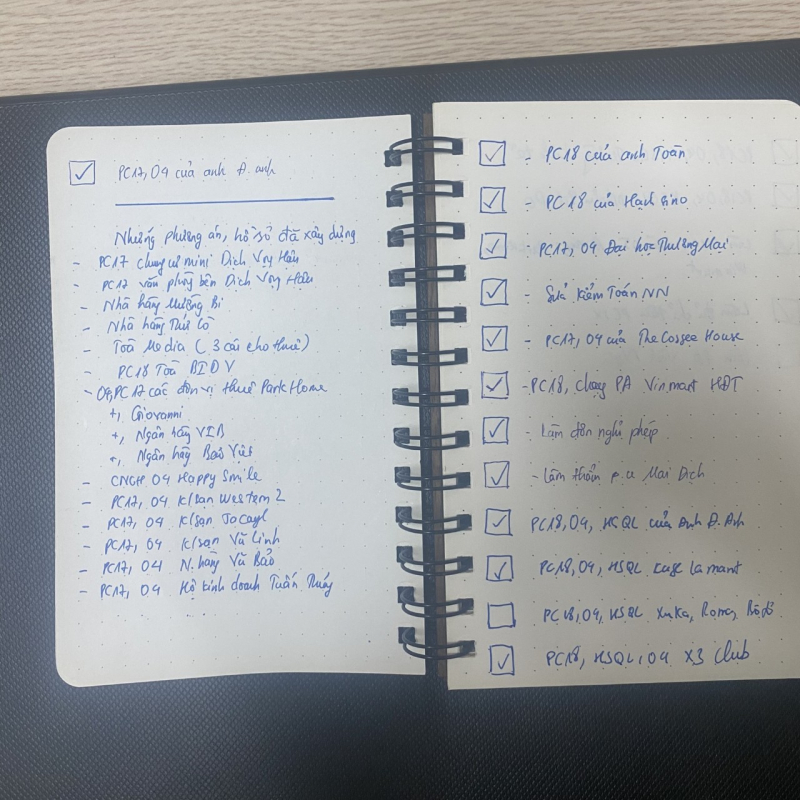 PC17, 04 của anh Đ. anh
Những phương án, hồ sơ đã xây dựng
- PC17 chung cư mini Dịch Vọng Hậu
- PC17 văn phòng bên Dịch Vọng Hậu
- Nhà hàng Mường Bi
- Nhà hàng
- Toà Media ( 3 cái cho thuê )
- PC18 Toà BIDV
- 04, PC17 các đơn vị thuê Park Home
+, Giovanni
+, Ngân hàng VIB
+, Ngân hàng Bảo Việt
- CNCH 04 Happy Smile
- PC17, 04 K/sạn Western 2
- PC17, 04 K/sạn
- PC17, 04 K/sạn Vũ Linh
- PC17, 04 N. hàng Vũ Bảo
- PC17, 04 Hộ kinh doanh Tuấn Thúy
- PC18 của anh Toàn
- PC18 của
- PC17, 04 Đại học Thương Mại
- Sửa Kiểm Toán NN
- PC17, 04 của The Coffee House
- PC18, chạy PA Vinmart HĐT
- Làm đơn nghỉ phép
- Làm thẩm p.a Mai Dịch
PC18, 04, HSQL của Anh Đ. Anh
PC18, 04, HSQL lamant
PC18, 04, HSQL Xuka, Roma,
PC18, HSQL, 04 X3 Club